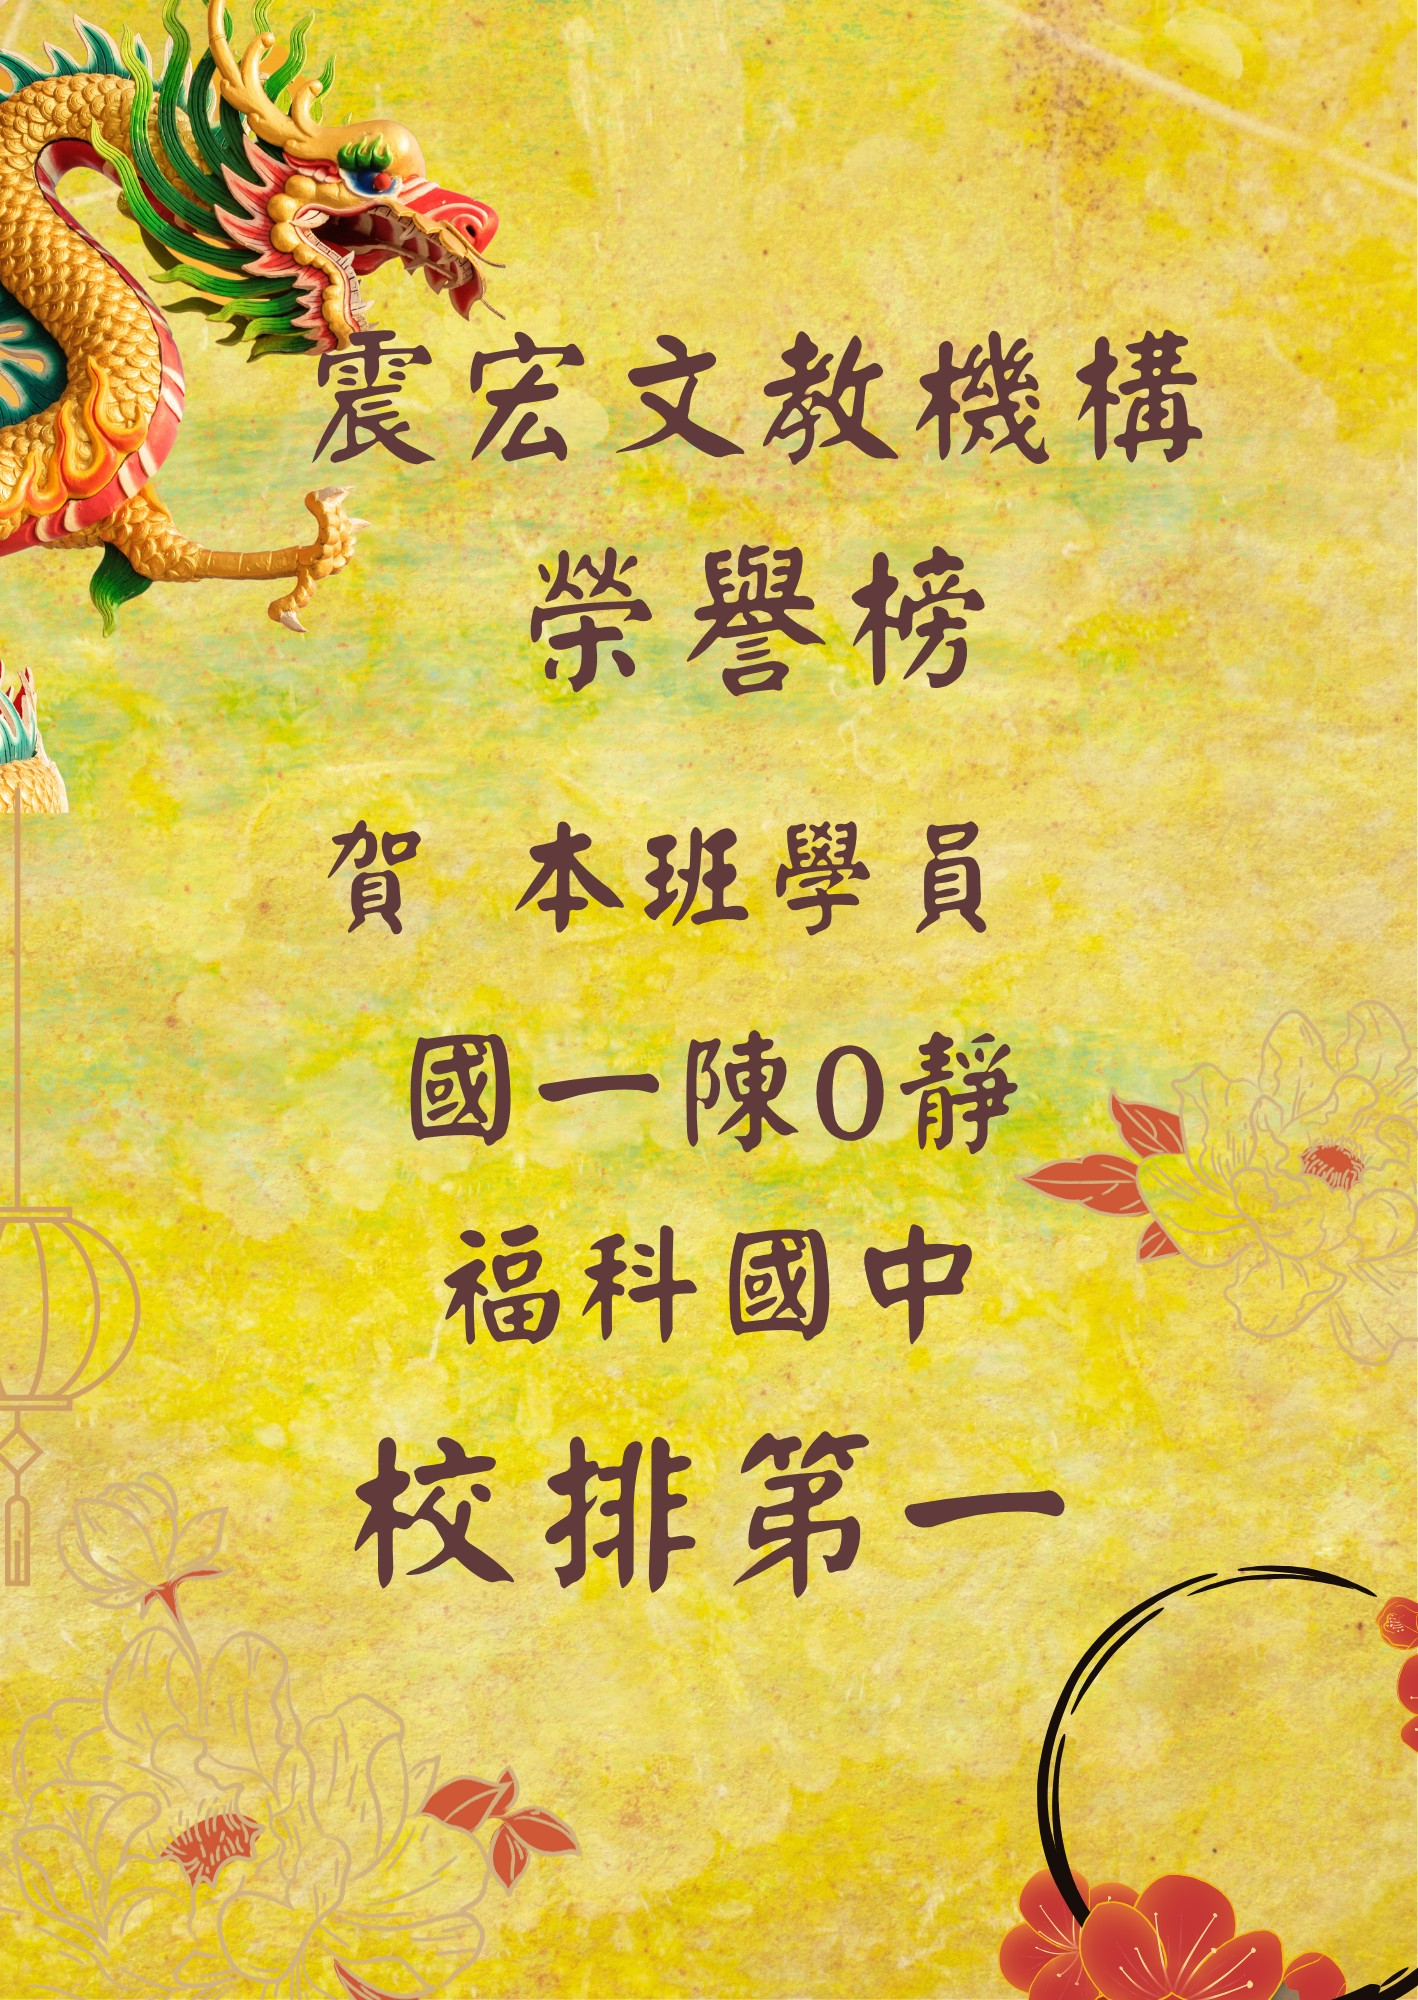 震宏文教機構
榮譽榜
賀 本班學員
國一陳O靜
福科國中
校排第一